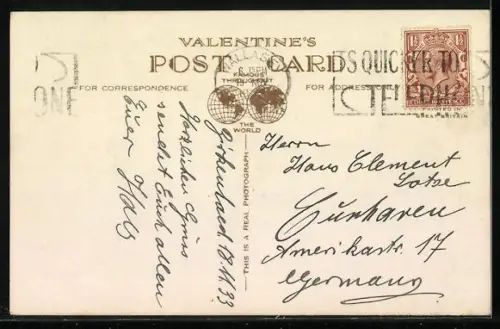 VALENTINE'S
POST CARD
FAMOUS
THROUGHOUT
THE
WORLD
FOR CORRESPONDENCE
FOR ADDRESS ONLY
THIS IS A REAL PHOTOGRAPH
IT'S QUICKER TO
TELEPHONE
ONE
18.11.33
Herzlichen Gruss
sendet Euch allen
Euer Hans
Herrn
Hans Clement
Lotze
Cuxhaven
Amerikastr. 17
Germany